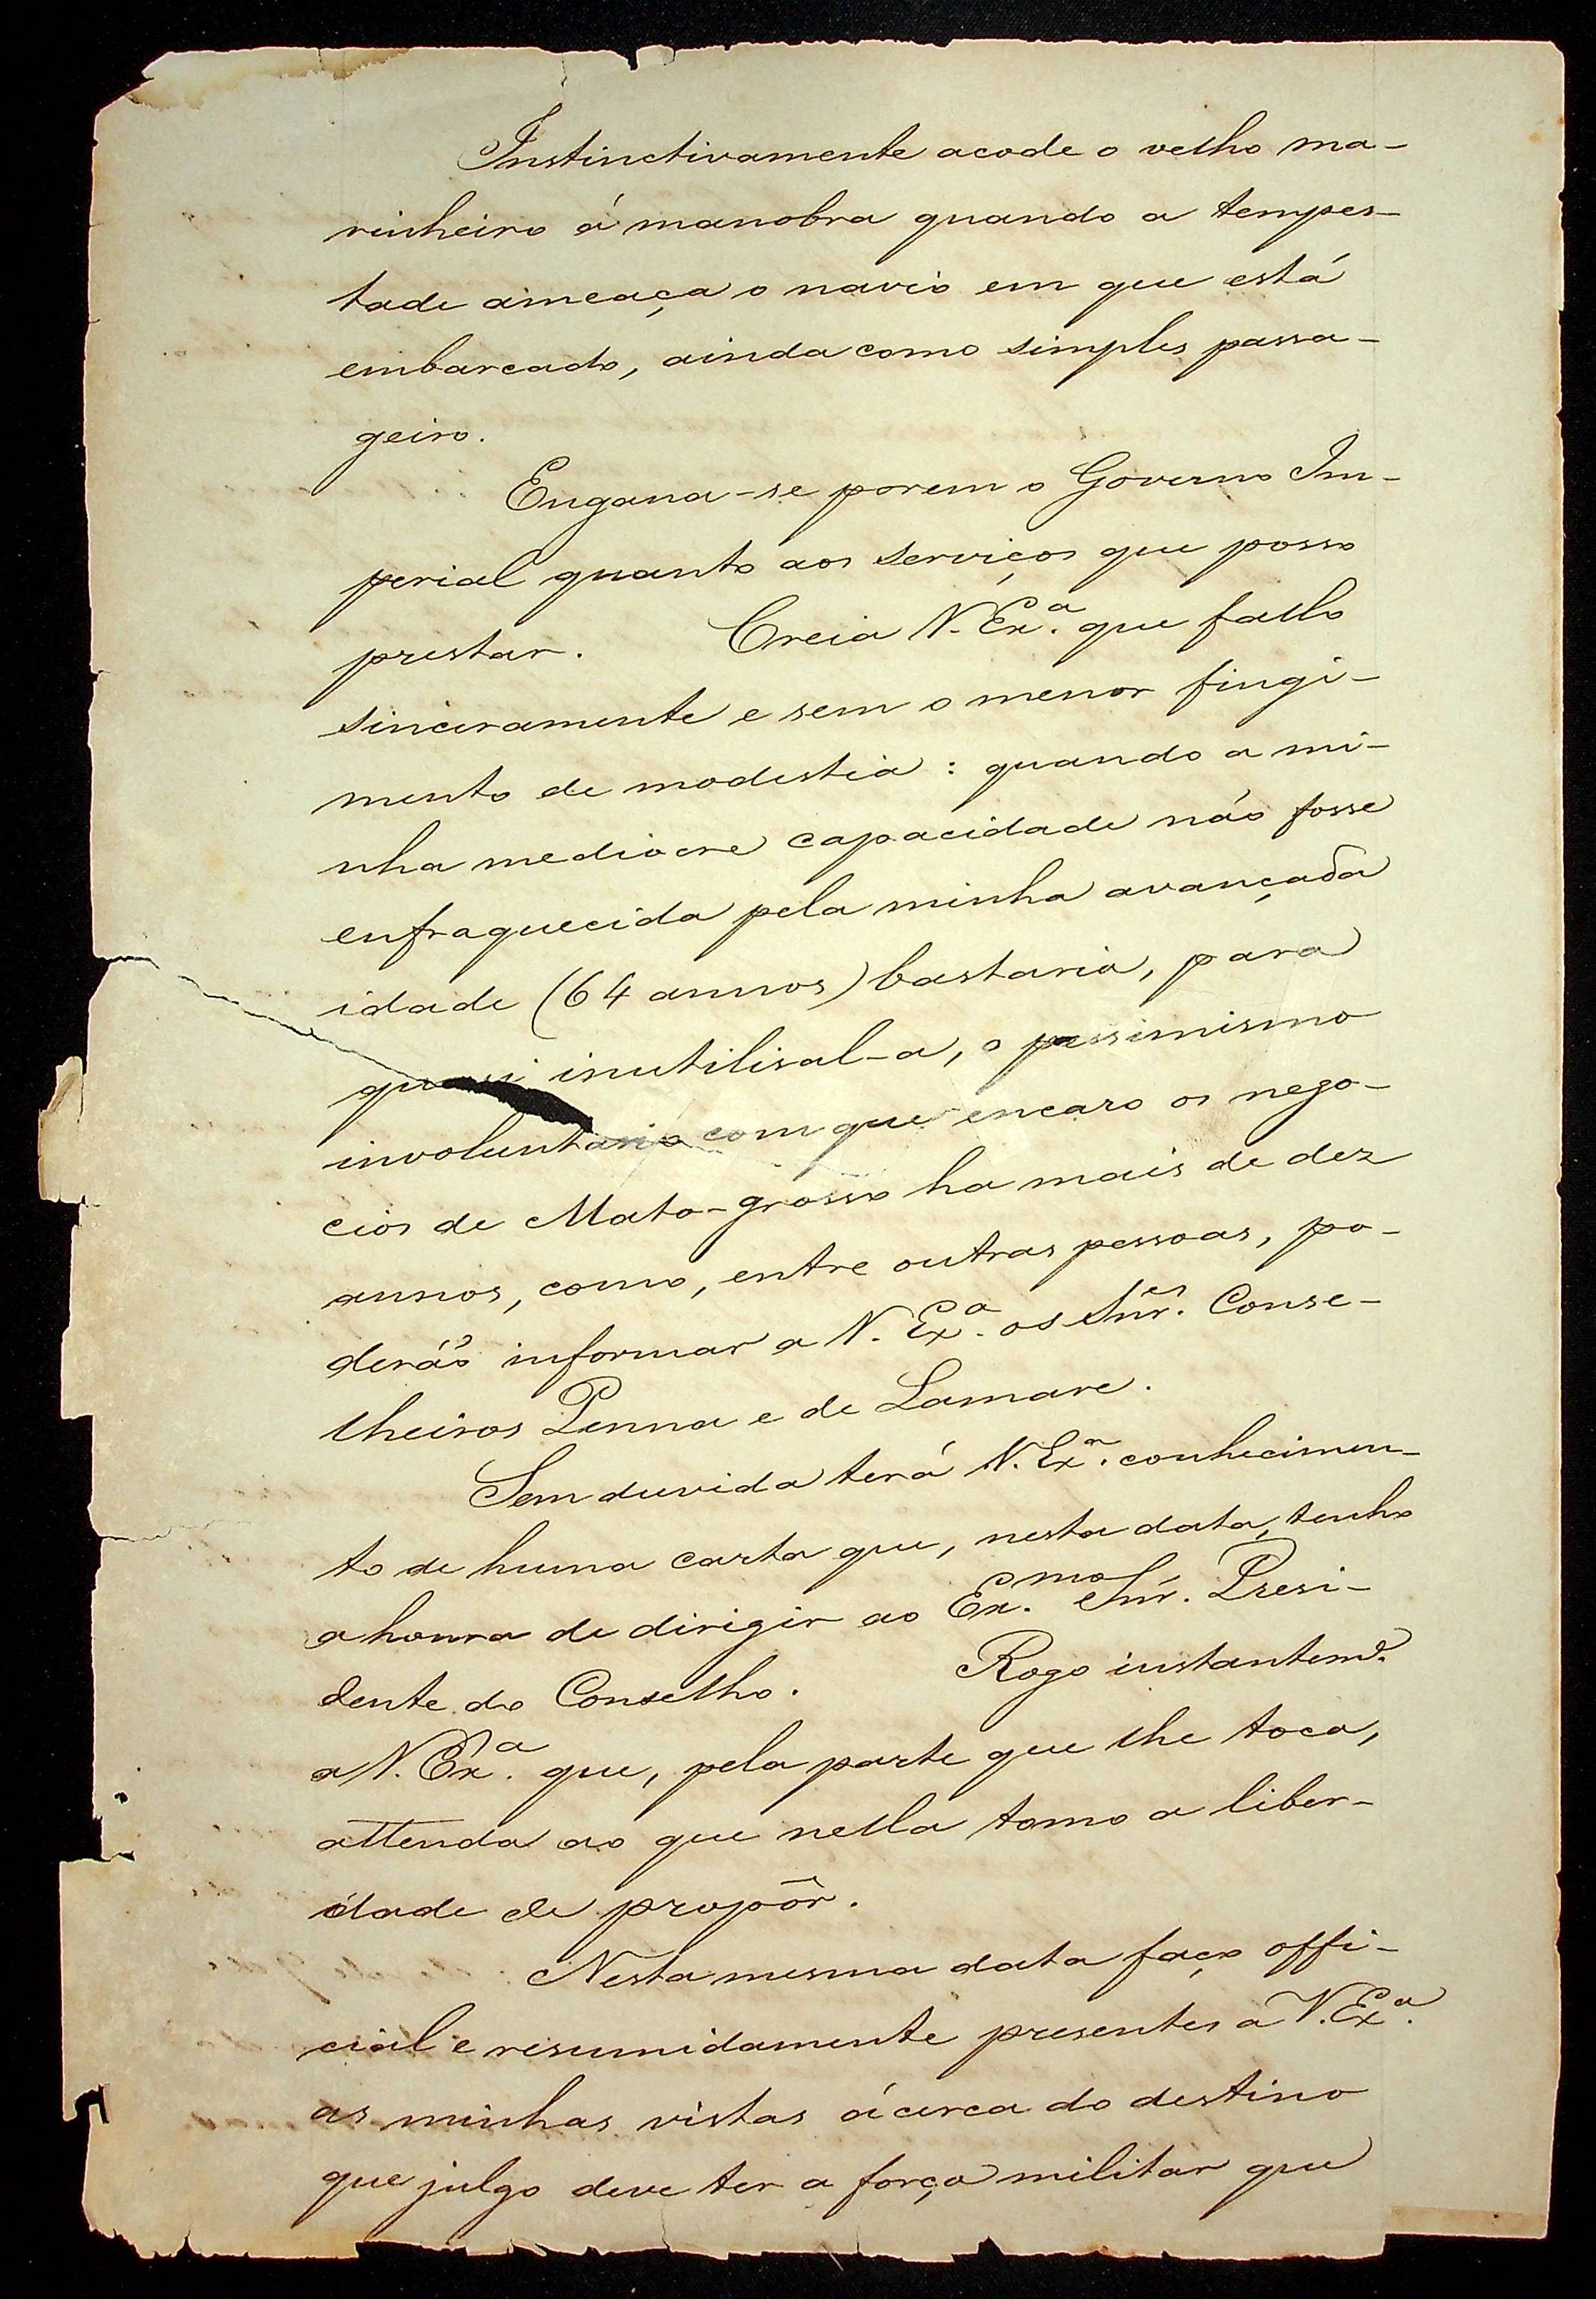 Instinctivamente acode o velho ma-
rinheiro á manobra quando a tempes-
tade ameaça o navio em que está
embarcado, ainda como simples passa-
geiro.
Engana-se porem o Governo Im-
perial quanto aos serviços que posso
prestar. Creia V. Ex.ª que fallo
sinceramente e sem o menor fingi-
mento de modestia : quando a mi-
nha mediocre capacidade não fosse
enfraquecida pela minha avançada
idade (64 annos) bastaria, para
quasi inutilisal-a, o pessimismo
involuntario com que encaro os nego-
cios de Mato-grosso ha mais de dez
annos, como, entre outras pessoas, po-
deráõ informar a V. Ex.ª os Snr.es Conse-
lheiros Penna e de Lamare.
Sem duvida terá V. Ex.ª conhecimen-
to de huma carta que, nesta data, tenho
a honra de dirigir ao Ex.mo Snr. Presi-
dente do Conselho. Rogo instantem.e
a V. Ex.ª que, pela parte que lhe toca,
attenda ao que nella tomo a liber-
dade de propôr.
Nesta mesma data faço offi-
cial e resumidamente presentes a V. Ex.ª
as minhas vistas ácerca do destino
que julgo deve ter a força militar que